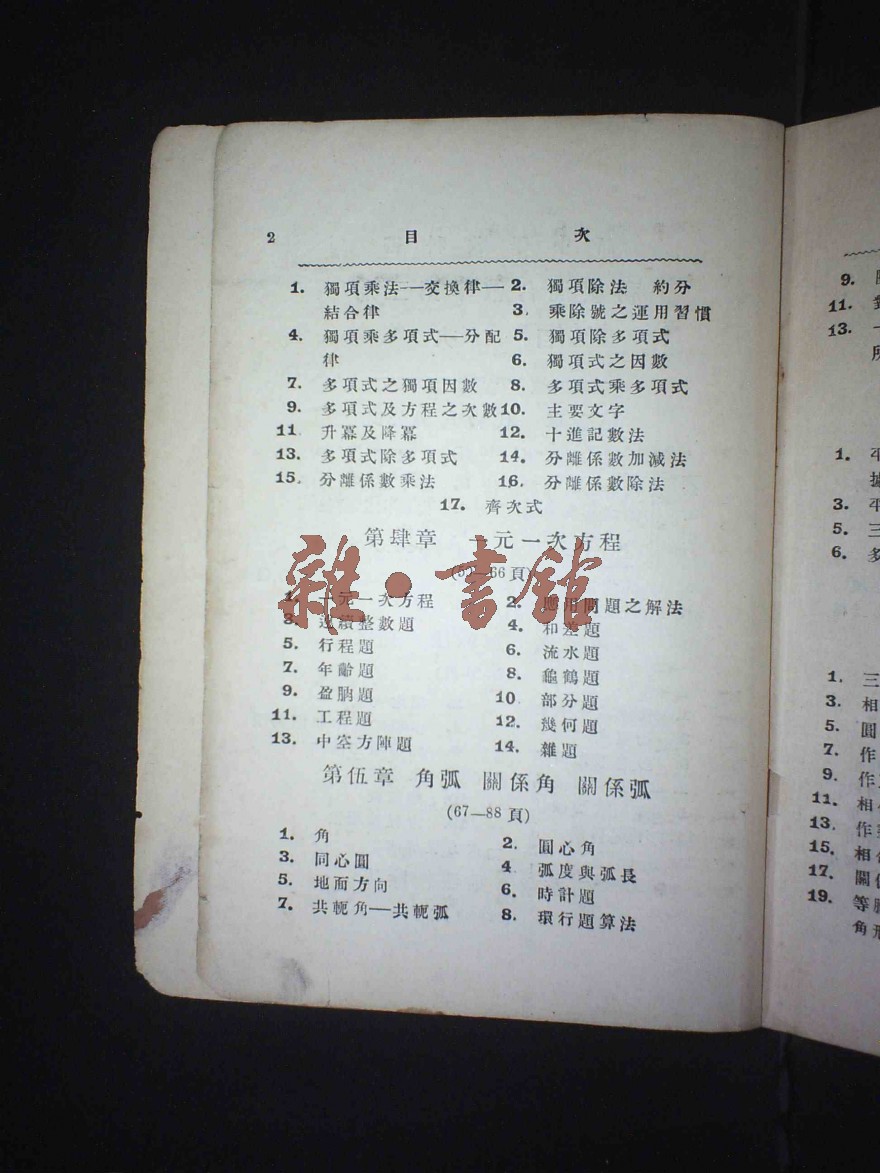 2 目 次
1. 獨項乘法——交換律— 2. 獨項除法 約分
結合律 3. 乘除號之運用習慣
4. 獨項乘多項式——分配 5. 獨項除多項式
律 6. 獨項式之因數
7. 多項式之獨項因數 8. 多項式乘多項式
9. 多項式及方程之次數 10. 主要文字
11 升冪及降冪 12. 十進記數法
13. 多項式除多項式 14. 分離係數加減法
15. 分離係數乘法 16. 分離係數除法
17. 齊次式
第肆章 一元一次方程
—66頁)
雜·書館
1. 一元一次方程 2. 應用問題之解法
3. 連續整數題 4. 和差題
5. 行程題 6. 流水題
7. 年齡題 8. 龜鶴題
9. 盈朒題 10 部分題
11. 工程題 12. 幾何題
13. 中空方陣題 14. 雜題
第伍章 角弧 關係角 關係弧
(67—88頁)
1. 角 2. 圓心角
3. 同心圓 4 弧度與弧長
5. 地面方向 6. 時計題
7. 共軛角—共軛弧 8. 環行題算法
9.
11.
13.
1. 平
3. 平
5. 三
6. 多
1. 三
3. 相
5. 圓
7. 作
9. 作
11. 相
13. 作
15. 相
17. 關
19. 等
角形